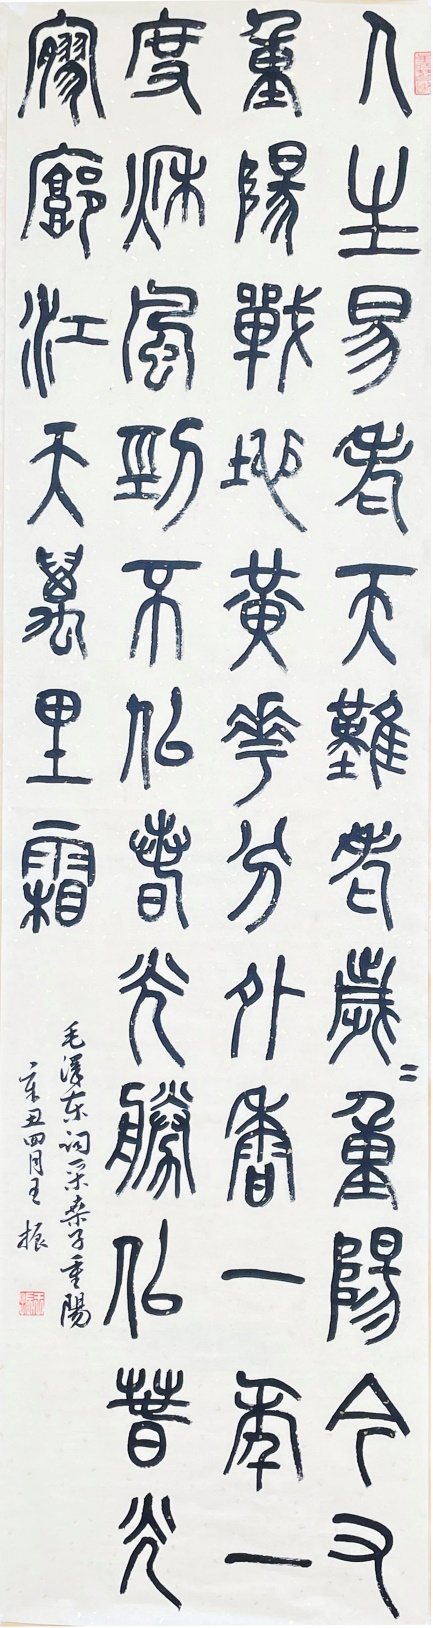 人生易老天難老歲〻重陽今又
重陽戰地黃花分外香一年一
度秋風勁不似春光勝似春光
寥廓江天萬里霜
毛澤东詞采桑子重陽
辛丑四月王振